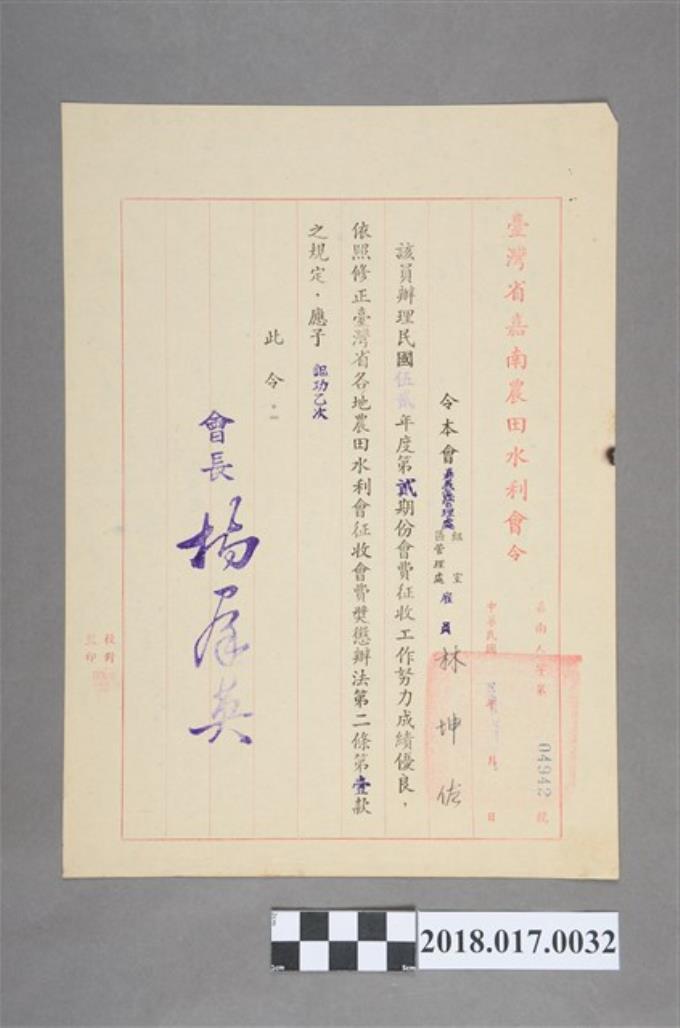 臺灣省嘉南農田水利會令
嘉南人字第 04942 號
中華民國 年 月 日
令本會嘉義區管理處 組室 區管理處 雇員 林坤佑
該員辦理民國伍貳年度第貳期份會費征收工作努力成績優良，
依照修正臺灣省各地農田水利會征收會費獎懲辦法第二條第壹款
之規定，應予記功乙次
此令。
會長 楊群英
校對
監印
2018.017.0032